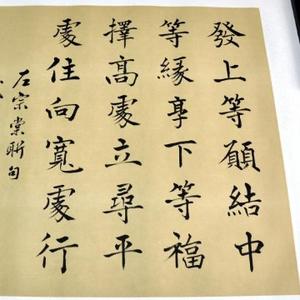 發上等願結中
等緣享下等福
擇高處立尋平
處住向寬處行
左宗棠聯句